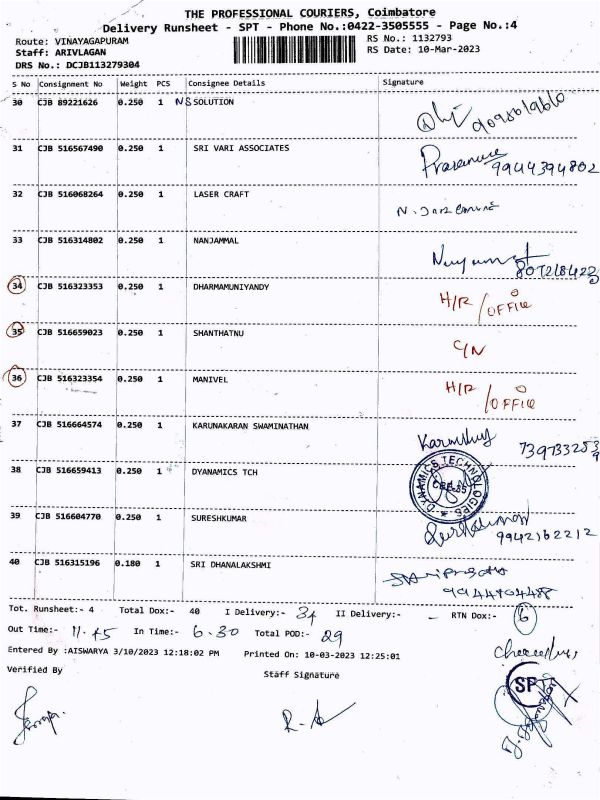 THE PROFESSIONAL COURIERS, Coimbatore
Delivery Runsheet - SPT - Phone No.:0422-3505555 - Page No.:4
Route: VINAYAGAPURAM RS No.: 1132793
Staff: ARIVLAGAN RS Date: 10-Mar-2023
DRS No.: DCJB113279304
S No Consignment No Weight PCS Consignee Details Signature
30 CJB 89221626 0.250 1 NS SOLUTION
31 CJB 516567490 0.250 1 SRI VARI ASSOCIATES
9944394802
32 CJB 516068264 0.250 1 LASER CRAFT
33 CJB 516314802 0.250 1 NANJAMMAL
34 CJB 516323353 0.250 1 DHARMAMUNIYANDY H/R / OFFICE
35 CJB 516659023 0.250 1 SHANTHATNU C/N
36 CJB 516323354 0.250 1 MANIVEL H/R / OFFICE
37 CJB 516664574 0.250 1 KARUNAKARAN SWAMINATHAN
38 CJB 516659413 0.250 1 DYANAMICS TCH DYNAMICS TECHNOLOGIES
39 CJB 516604770 0.250 1 SURESHKUMAR
9942162212
40 CJB 516315196 0.180 1 SRI DHANALAKSHMI
Tot. Runsheet:- 4 Total Dox:- 40 I Delivery:- 34 II Delivery:- - RTN Dox:- 6
Out Time:- 11.45 In Time:- 6.30 Total POD:- 29
Entered By :AISWARYA 3/10/2023 12:18:02 PM Printed On: 10-03-2023 12:25:01
Verified By Staff Signature
SP